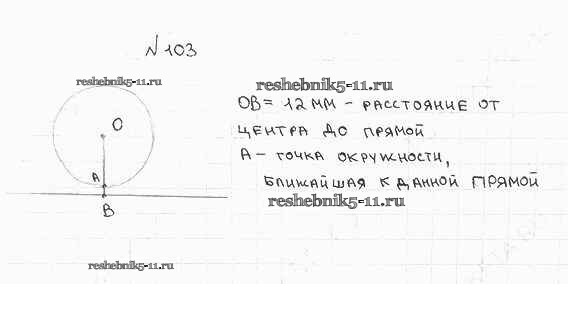 №103
reshebnik5-11.ru
O
A
B
reshebnik5-11.ru
OB = 12 мм - расстояние от
центра до прямой
A - точка окружности,
ближайшая к данной прямой
reshebnik5-11.ru
reshebnik5-11.ru